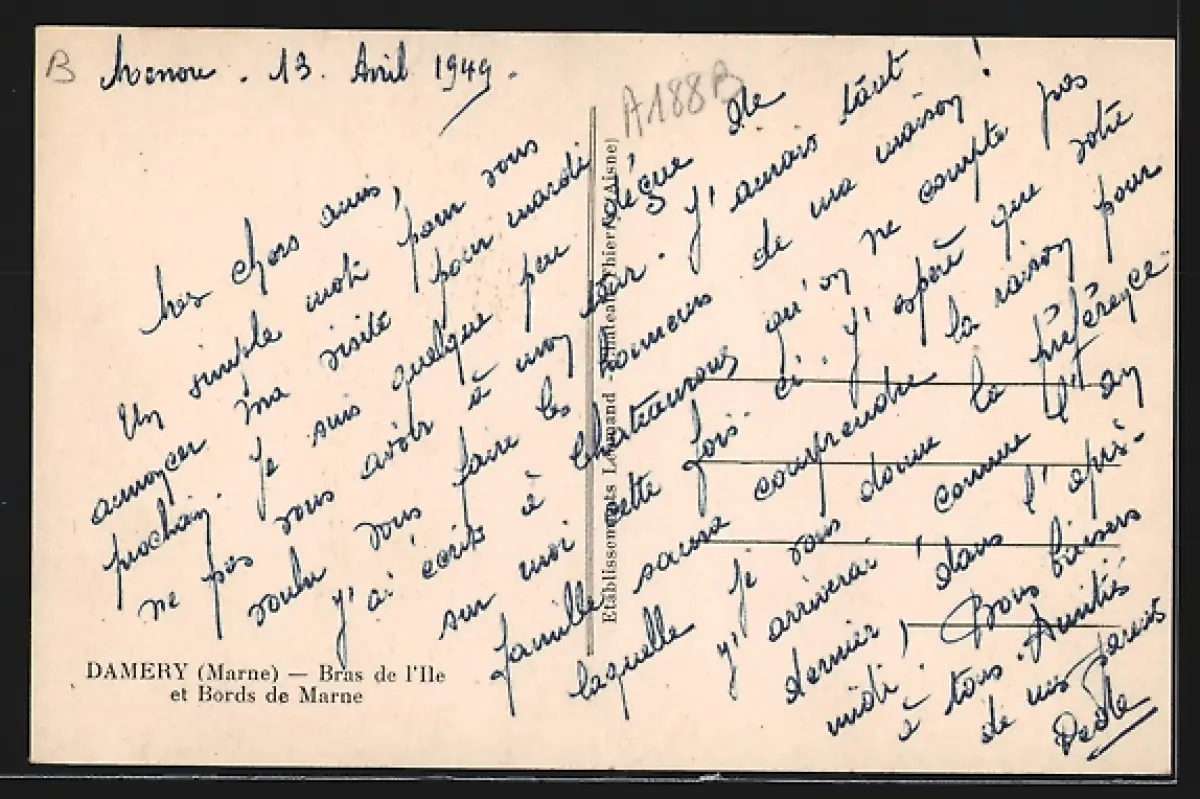 B
A188B
Menou . 13 . Avril 1949 .
Mes chers amis,
Un simple mot pour vous
annoncer ma visite pour mardi
prochain. Je suis quelque peu déçue de
ne pas vous avoir à mon tour. J'aurais tant
voulu vous faire les honneurs de ma maison !
J'ai écrit à Chateauroux qu'on ne compte pas
sur moi cette fois-ci. J'espère que votre
famille saura comprendre la raison pour
laquelle je vous donne la préférence.
J'arriverai comme l'an
dernier, dans l'après-
midi. Bons baisers
à tous. Amitiés
de mes parents
DAMERY (Marne) — Bras de l'Ile
et Bords de Marne
Etablissements Lemand - Château-Thierry (Aisne)